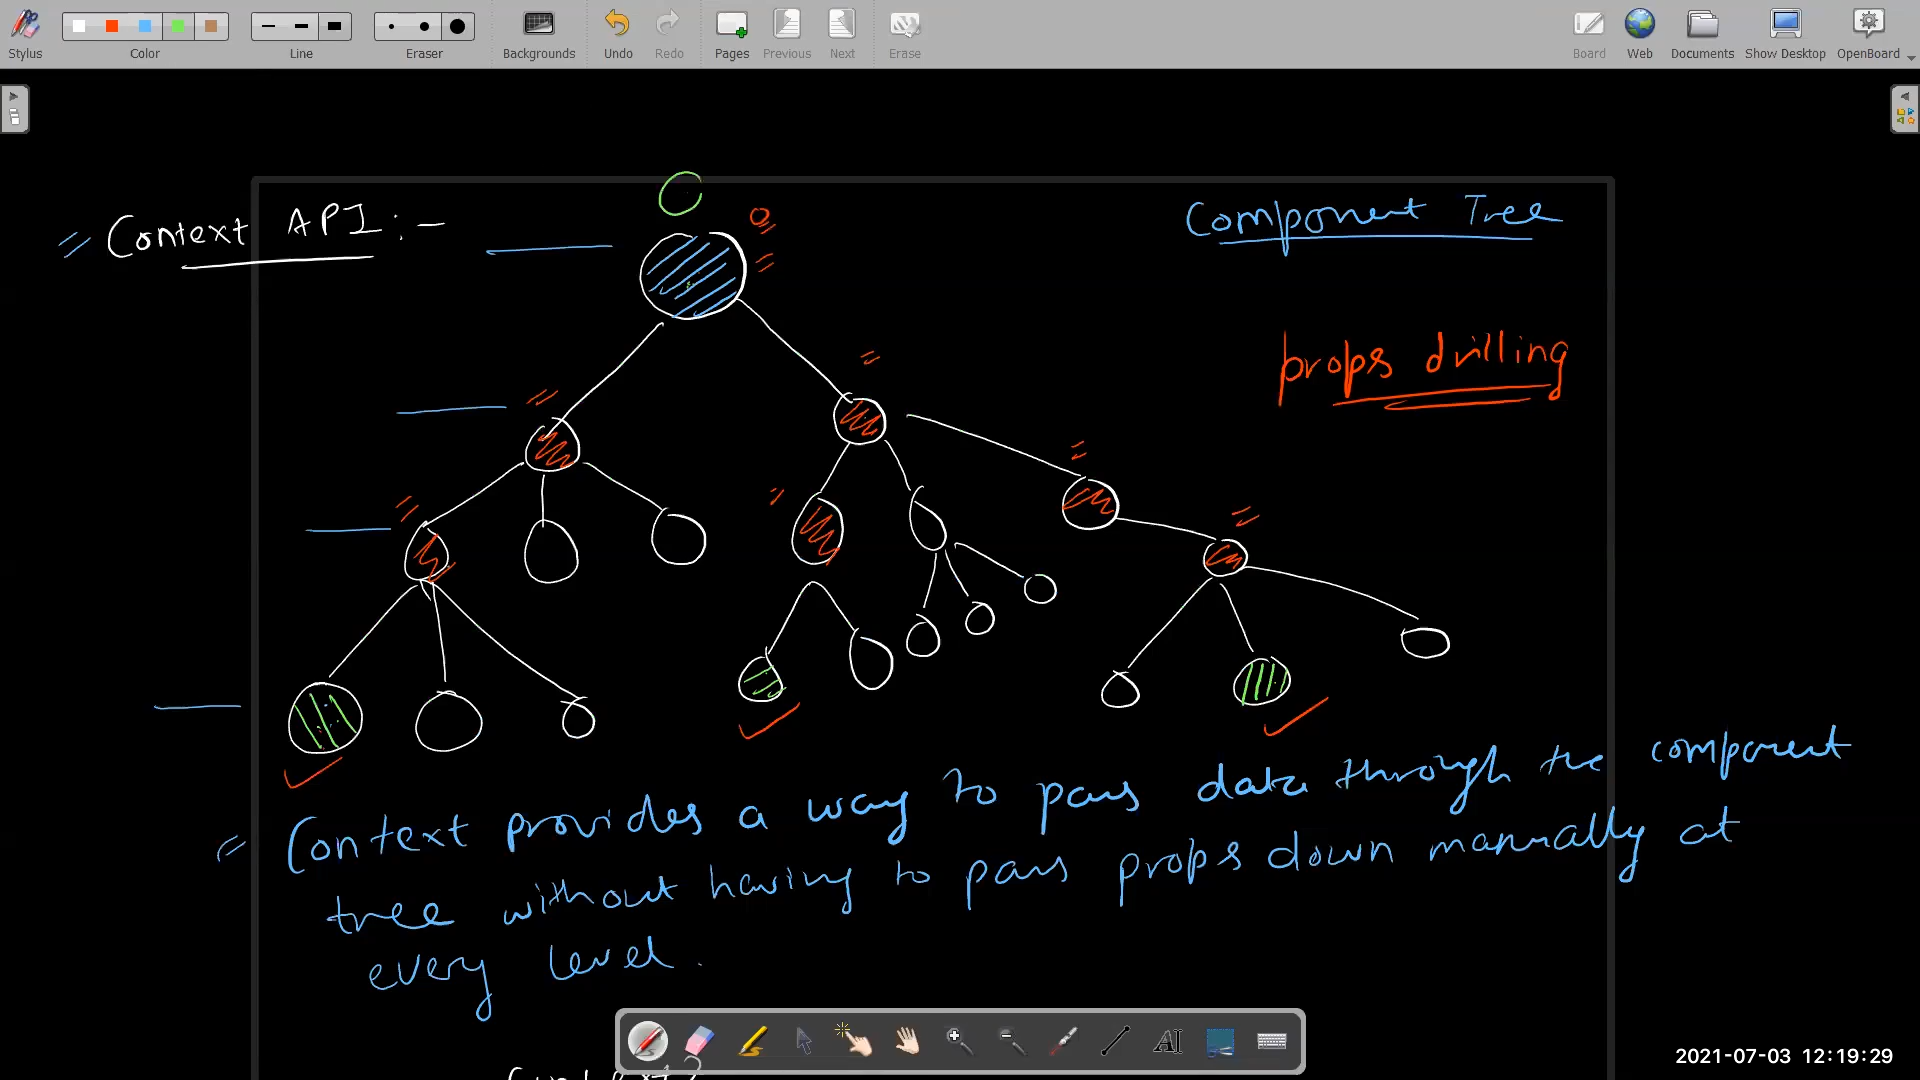 Stylus
Color
Line
Eraser
Backgrounds
Undo
Redo
Pages
Previous
Next
Erase
Board
Web
Documents
Show Desktop
OpenBoard
= Context API:-
Component Tree
props drilling
= Context provides a way to pass data through the component
tree without having to pass props down manually at
every level.
2021-07-03 12:19:29